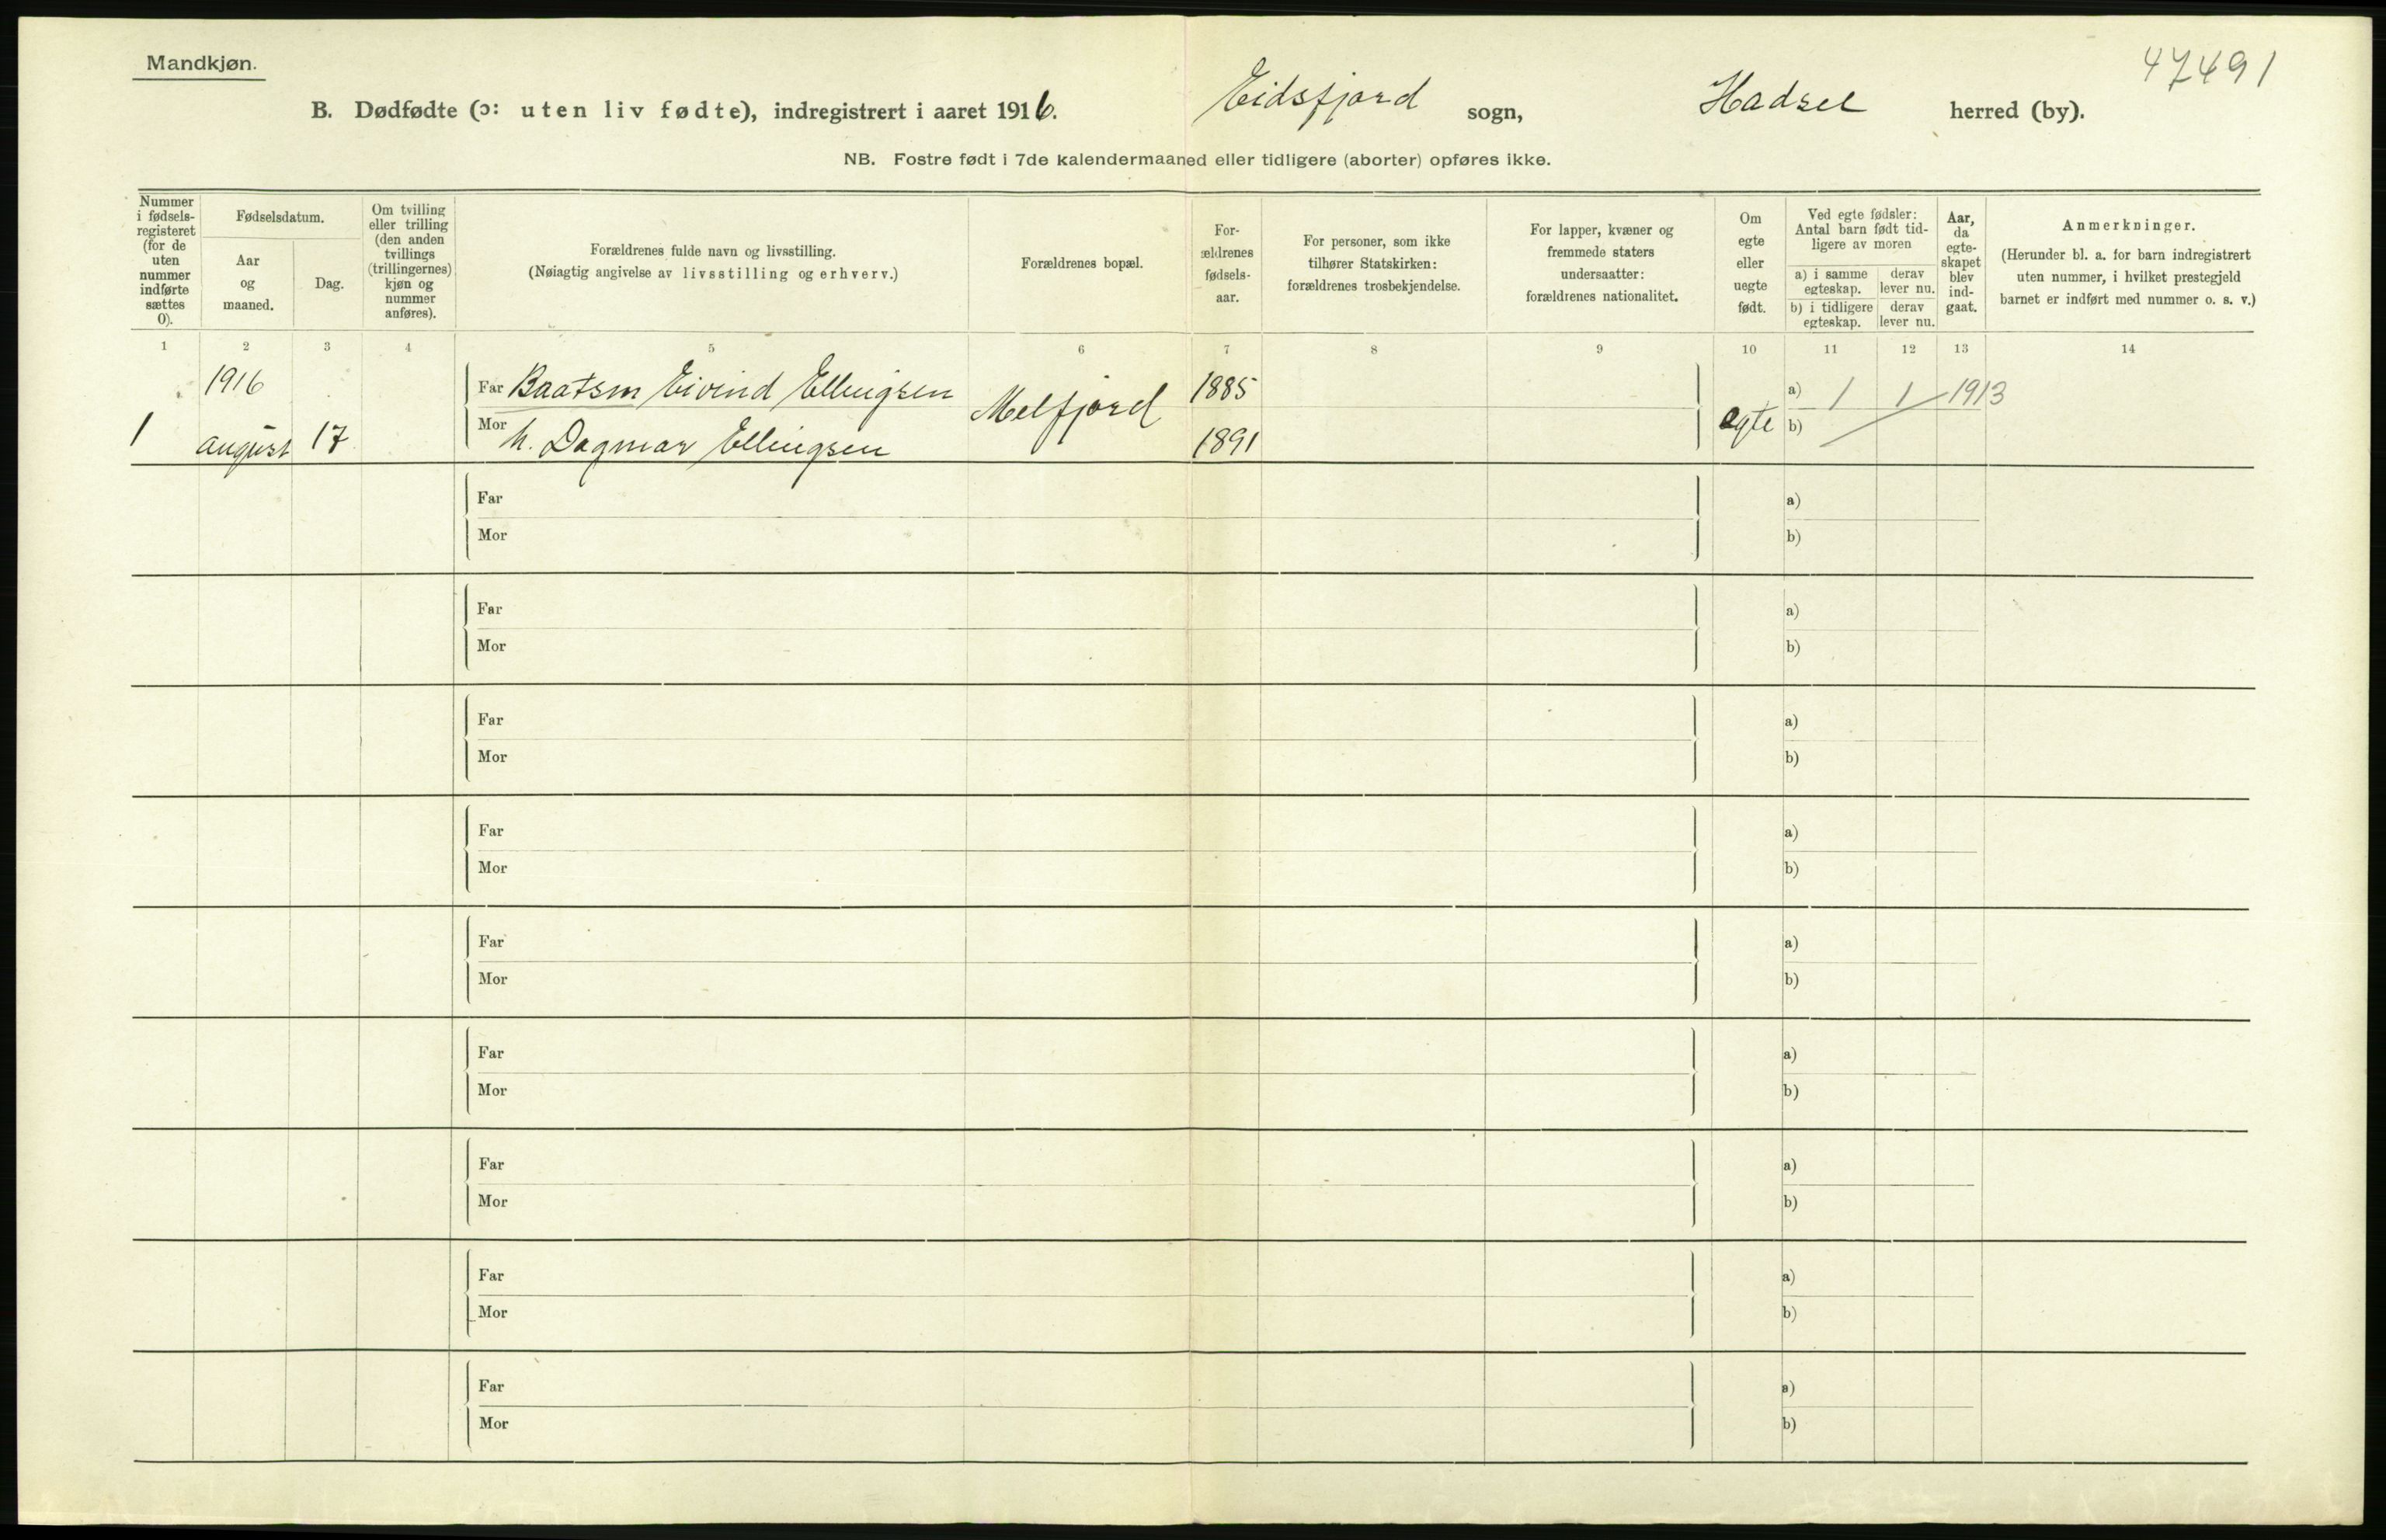 Mandkjøn.
47491
B. Dødfødte (ɔ: uten liv fødte), indregistrert i aaret 1916. Eidsfjord sogn, Hadsel herred (by).
NB. Fostre født i 7de kalendermaaned eller tidligere (aborter) opføres ikke.
Nummer i fødsels-registeret (for de uten nummer indførte sættes 0).
Fødselsdatum.
Aar og maaned.
Dag.
Om tvilling eller trilling (den anden tvillings (trillingernes) kjøn og nummer anføres).
Forældrenes fulde navn og livsstilling.
(Nøiagtig angivelse av livsstilling og erhverv.)
Forældrenes bopæl.
For-ældrenes fødsels-aar.
For personer, som ikke tilhører Statskirken: forældrenes trosbekjendelse.
For lapper, kvæner og fremmede staters undersaatter: forældrenes nationalitet.
Om egte eller uegte født.
Ved egte fødsler: Antal barn født tid-ligere av moren
a) i samme egteskap.
derav lever nu.
b) i tidligere egteskap.
derav lever nu.
Aar, da egte-skapet blev ind-gaat.
Anmerkninger.
(Herunder bl. a. for barn indregistrert uten nummer, i hvilket prestegjeld barnet er indført med nummer o. s. v.)
1 2 3 4 5 6 7 8 9 10 11 12 13 14
1916 Far Baatsm Eivind Ellingsen Melfjord 1885 a) 1 1 1913
1 august 17 Mor h. Dagmar Ellingsen 1891 egte b)
Far a)
Mor b)
Far a)
Mor b)
Far a)
Mor b)
Far a)
Mor b)
Far a)
Mor b)
Far a)
Mor b)
Far a)
Mor b)
Far a)
Mor b)
Far a)
Mor b)